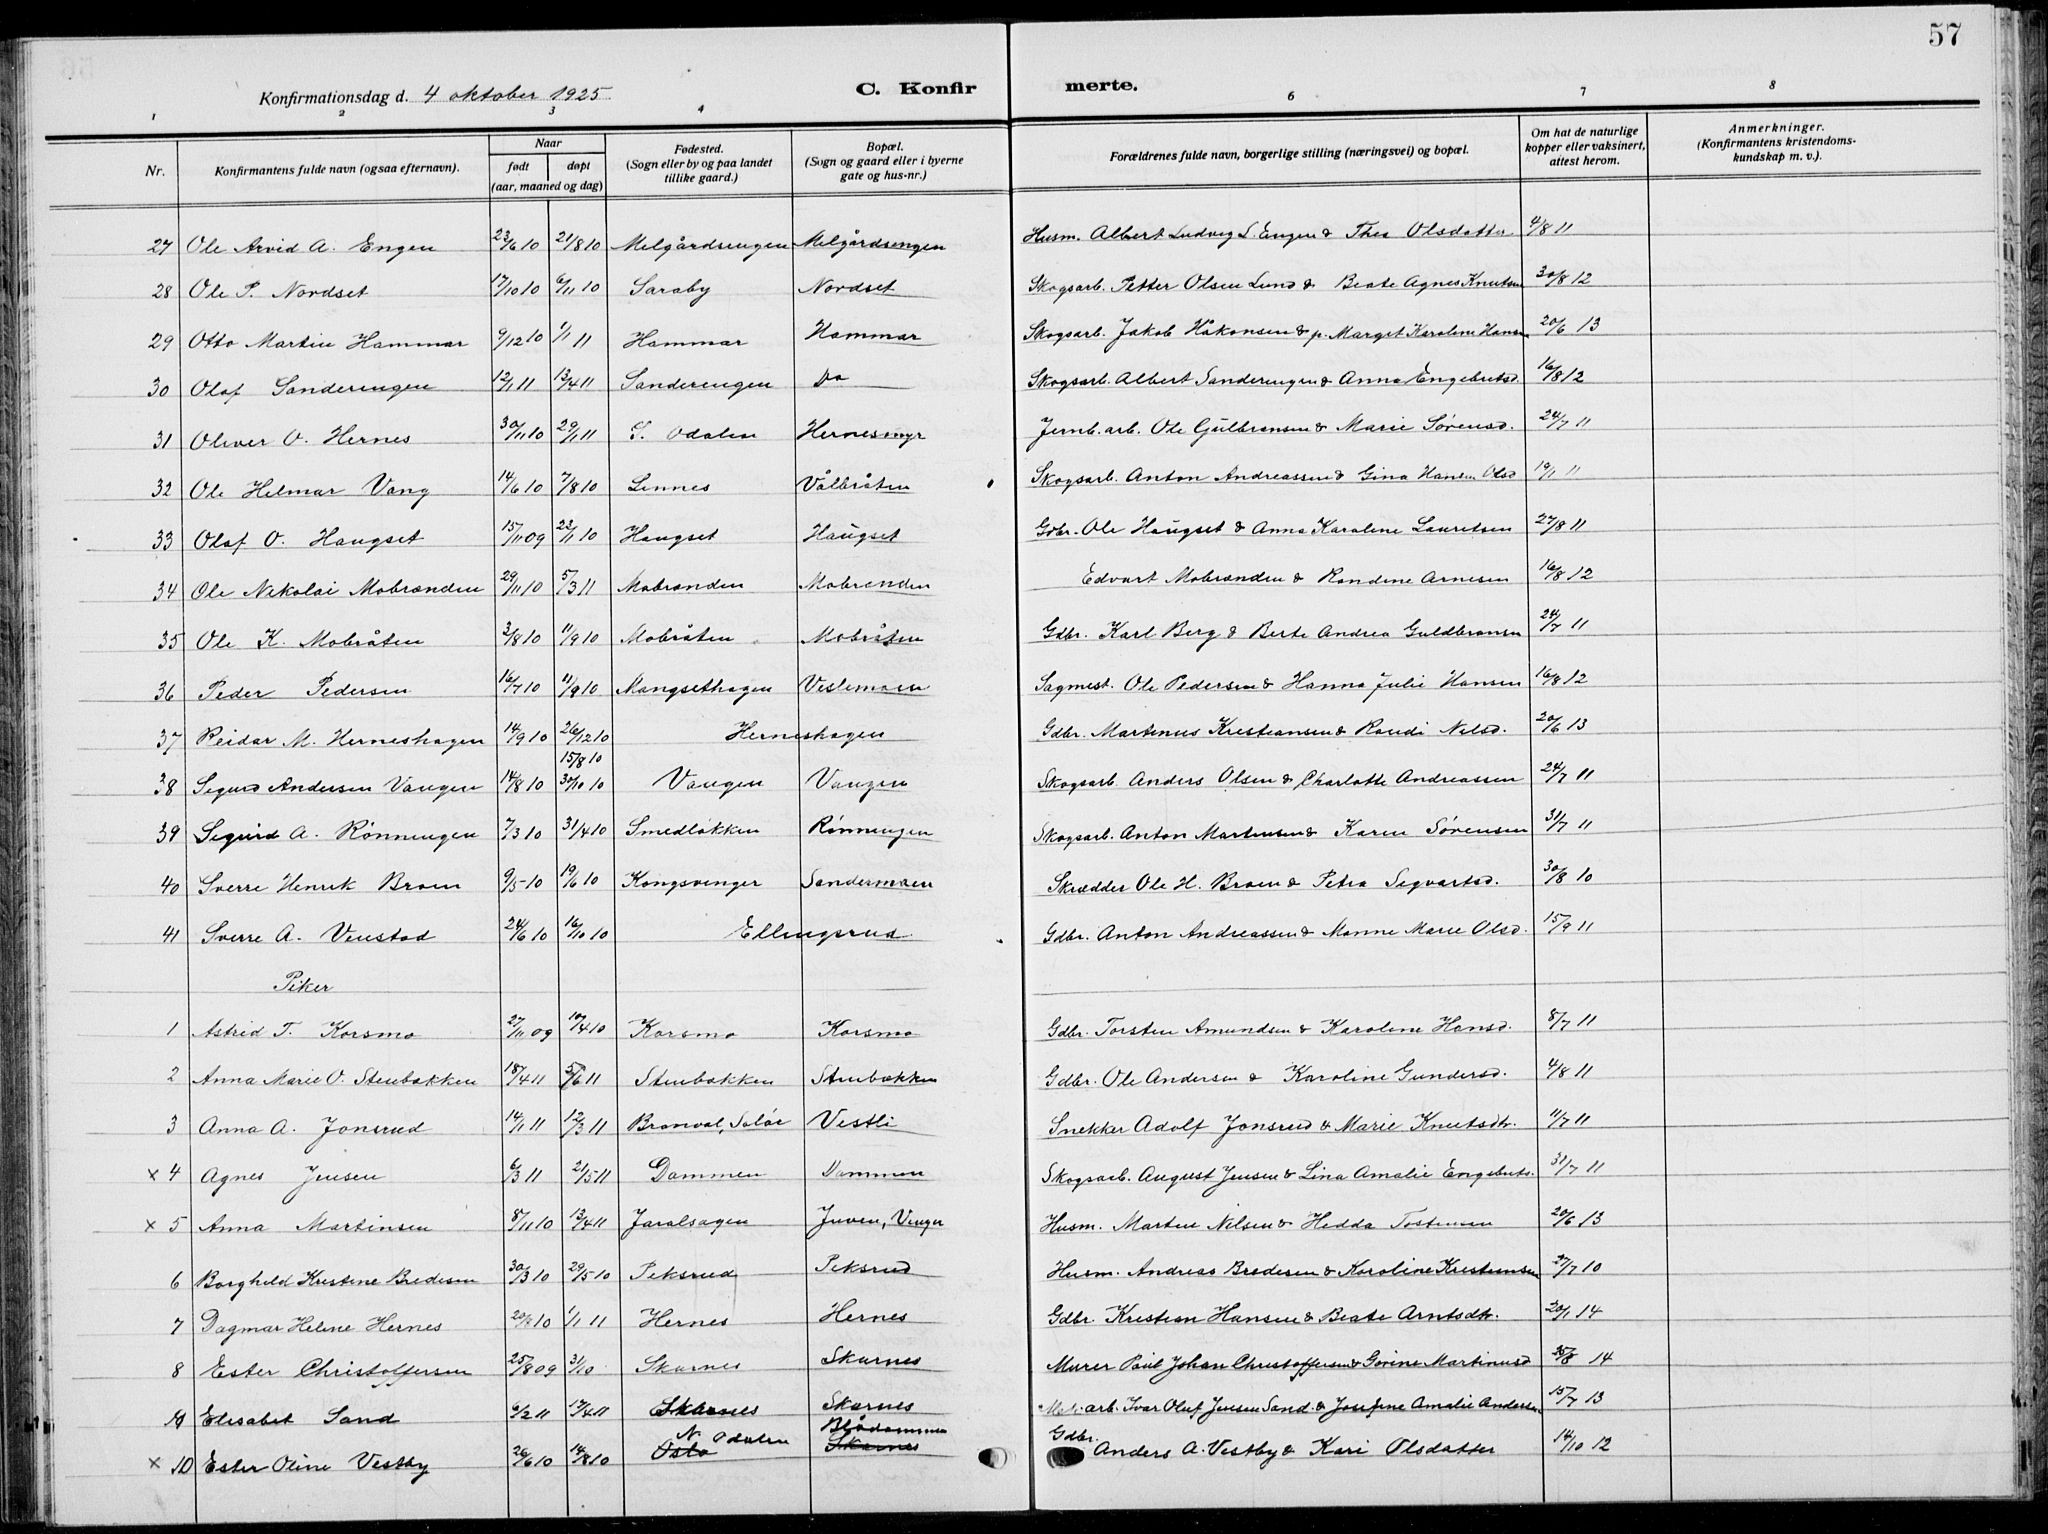 57
Konfirmationsdag d. 4 oktober 1925. C. Konfir merte.
1 2 3 4 6 7 8
Nr. Konfirmantens fulde navn (ogsaa efternavn). Naar født døpt (aar, maaned og dag) Fødested. (Sogn eller by og paa landet tillike gaard.) Bopæl. (Sogn og gaard eller i byerne gate og hus-nr.) Forældrenes fulde navn, borgerlige stilling (næringsvei) og bopæl. Om hat de naturlige kopper eller vaksinert, attest herom. Anmerkninger. (Konfirmantens kristendoms-kundskap m. v.).
27 Ole Arvid A. Engen 23/6 10 21/8 10 Melgårdsengen Melgårdsengen Husm. Albert Ludvig L. Engen & Thea Olsdatter 4/8 11
28 Ole P. Nordset 17/10 10 6/11 10 Saraby Nordset Skogsarb. Petter Olsen Lund & Beate Agnes Knutsen 30/8 12
29 Otto Martin Hammar 9/12 10 1/1 11 Hammar Hammar Skogsarb. Jakob Håkonsen & p. Margit Karoline Hansen 20/6 13
30 Olaf Sanderengen 12/1 11 13/4 11 Sanderengen Do Skogsarb. Albert Sanderengen & Anna Engebretsd. 16/8 12
31 Oliver O. Hernes 30/11 10 29/1 11 S. Odalen Hernesmyr Jernb.arb. Ole Gulbransen & Marie Sørensd. 24/7 11
32 Ole Helmar Vang 14/6 10 7/8 10 Lennes Vålbråten Skogsarb. Anton Andreassen & Gina Hansen Olsd 19/1 11
33 Olaf O. Haugset 15/11 09 23/1 10 Haugset Haugset Gdbr. Ole Haugset & Anna Karoline Lauretsen 27/8 11
34 Ole Nikolai Mobrænden 29/11 10 5/3 11 Mobrænden Mobrenden Edvart Mobrænden & Randine Arnesen 16/8 12
35 Ole K. Mobråten 3/8 10 11/9 10 Mobråten Mobråten Gdbr. Karl Berg & Berte Andrea Guldbransen 24/7 11
36 Peder Pedersen 16/7 10 11/9 10 Mangsethagen Veslemoen Sagmest. Ole Pedersen & Hanna Julie Hansen 16/8 12
37 Reidar M. Herneshagen 14/9 10 26/12 10 Herneshagen Gdbr. Martinus Kristiansen & Randi Nilsd. 20/6 13
15/8 10
38 Sigurd Andersen Vangen 14/8 10 30/10 10 Vangen Vangen Skogsarb. Anders Olsen & Charlotte Andreassen 24/7 11
39 Sigurd A. Rønningen 7/3 10 31/4 10 Smedløkken Rønningen Skogsarb. Anton Martinsen & Karen Sørensen 31/7 11
40 Sverre Henrik Broen 9/5 10 19/6 10 Kongsvinger Sandermoen Skrædder Ole H. Broen & Petra Segvartsd. 30/8 10
41 Sverre A. Venstad 24/6 10 16/10 10 Ellingsrud Gdbr. Anton Andreassen & Manne Marie Olsd. 15/9 11
Piker
1 Astrid T. Korsmo 27/11 09 10/4 10 Korsmo Korsmo Gdbr. Torsten Amundsen & Karoline Hansd. 8/7 11
2 Anna Marie O. Stenbakken 18/4 11 5/6 11 Stenbakken Stenbakken Gdbr. Ole Andersen & Karoline Gundersd. 4/8 11
3 Anna A. Jonsrud 14/1 11 12/3 11 Branval, Soløe Vestli Snekker Adolf Jonsrud & Marie Knutsdtr. 11/7 11
× 4 Agnes Jensen 6/3 11 21/5 11 Dammen Dammen Skogsarb. August Jensen & Lina Amalie Engebrets. 31/7 11
× 5 Anna Martinsen 8/11 10 13/4 11 Juven, Venger Husm. Martin Nilsen & Hedda Tostensen 20/6 13
6 Borghild Kristine Bredesen 30/3 10 29/5 10 Peksrud Peksrud Husm. Andreas Bredesen & Karoline Kristiansen 27/7 10
7 Dagmar Helene Hernes 10 1/1 11 Hernes Hernes Gdbr. Kristian Hansen & Beate Arntsdtr. 20/1 14
8 Ester Christoffersen 25/8 09 3/10 Skarnes Skarnes Murer Paul Johan Christoffersen & Gorine Martinusd 14
9 Elisabet Sand 6/2 11 17/4 11 Skarnes Skarnes arb. Ivar Oluf Jensen Sand & Josefine Amalie Andersen 15/7 13
N. Odalen Blådammen Gdbr.
× 10 Ester Oline Vestby 26/6 10 14/8 10 Oslo Skarnes Anders A. Vestby & Kari Olsdatter 14/10 12